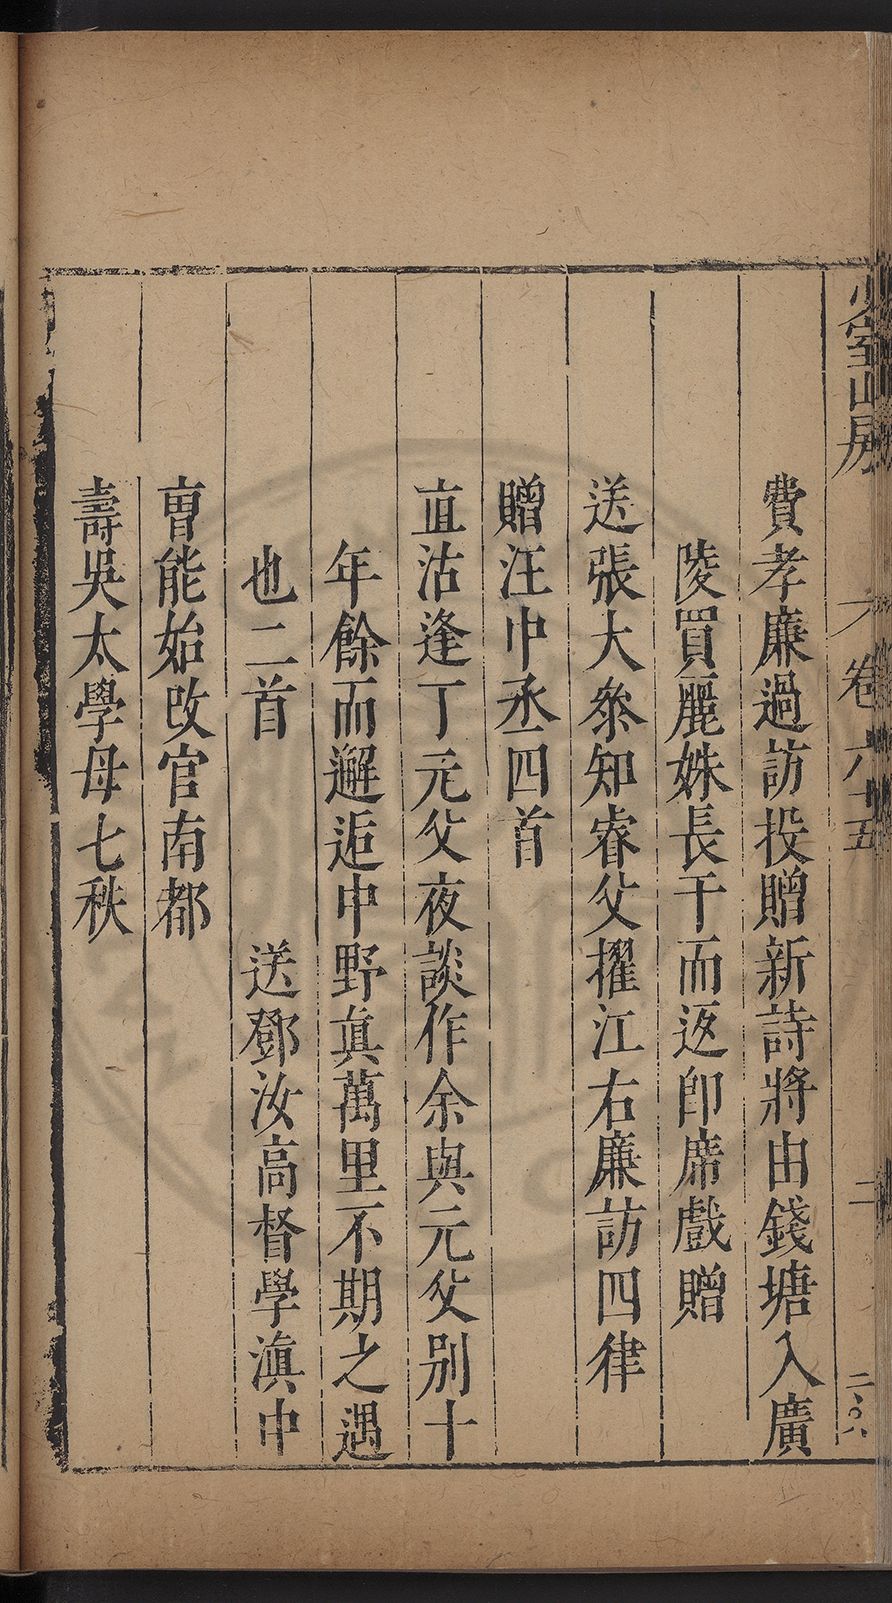 少室山房 卷六十五 二
費孝廉過訪投贈新詩將由錢塘入廣
陵買麗姝長干而返卽席戲贈
送張大叅知睿父擢江右廉訪四律
贈汪中丞四首
直沽逢丁元父夜談作余與元父別十
年餘而邂逅中野眞萬里不期之遇
也二首 送鄧汝高督學滇中
曹能始改官南都
壽吳太學母七秩